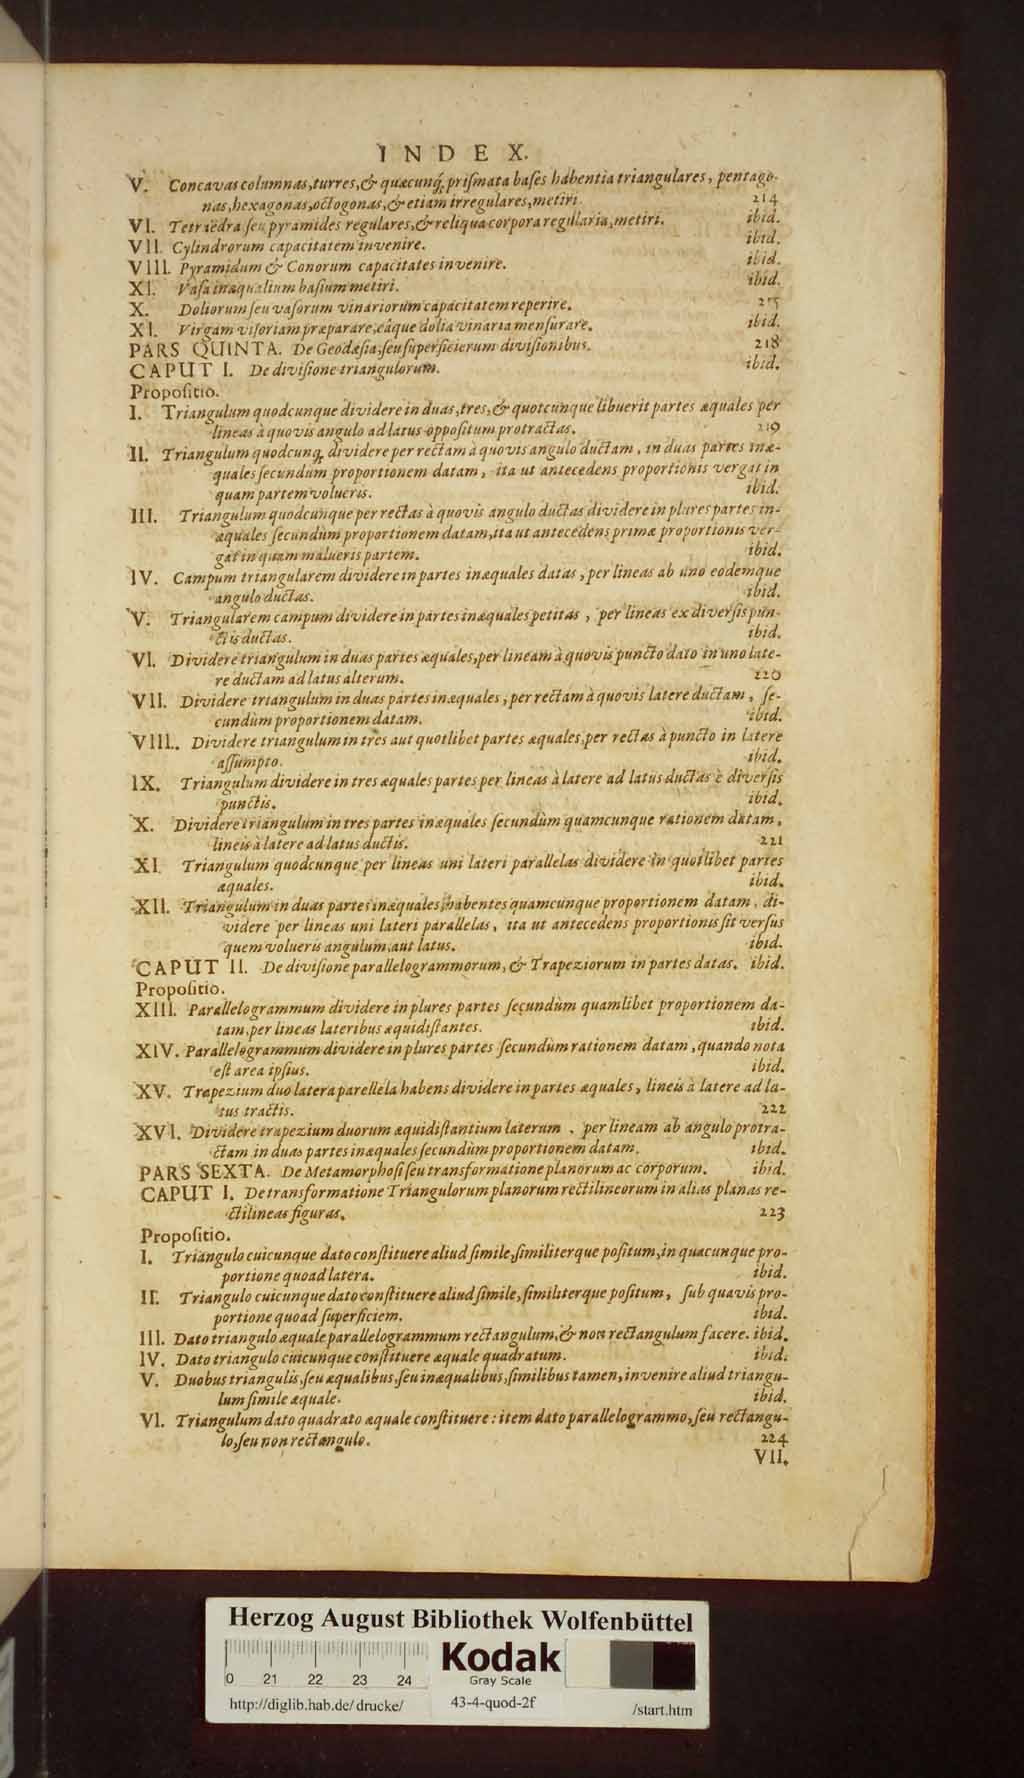 INDEX.
V. Concavas columnas, turres, & quæcunq; prismata bases habentia triangulares, pentago-
nas, hexagonas, octogonas, & etiam irregulares, metiri. 214
VI. Tetraedra seu pyramides regulares, & reliqua corpora regularia, metiri. ibid.
VII. Cylindrorum capacitatem invenire. ibid.
VIII. Pyramidum & Conorum capacitates invenire. ibid.
XI. Vasa inæqualium basium metiri. ibid.
X. Doliorum seu vasorum vinariorum capacitatem reperire. 215
XI. Virgam visoriam præparare, eâque dolia vinaria mensurare. ibid.
PARS QUINTA. De Geodæsia, seu superficierum divisionibus. 218
CAPUT I. De divisione triangulorum. ibid.
Propositio.
I. Triangulum quodcunque dividere in duas, tres, & quotcunque libuerit partes æquales per
lineas à quovis angulo ad latus oppositum protractas. 219
II. Triangulum quodcunq; dividere per rectam à quovis angulo ductam, in duas partes inæ-
quales secundùm proportionem datam, ita ut antecedens proportionis vergat in
quam partem volueris. ibid.
III. Triangulum quodcunque per rectas à quovis angulo ductas dividere in plures partes in-
æquales secundùm proportionem datam, ita ut antecedens primæ proportionis ver-
gat in quam malueris partem. ibid.
IV. Campum triangularem dividere in partes inæquales datas, per lineas ab uno eodemque
angulo ductas. ibid.
V. Triangularem campum dividere in partes inæquales petitas, per lineas ex diversis pun-
ctis ductas. ibid.
VI. Dividere triangulum in duas partes æquales, per lineam à quovis puncto dato in uno late-
re ductam ad latus alterum. 220
VII. Dividere triangulum in duas partes inæquales, per rectam à quovis latere ductam, se-
cundùm proportionem datam. ibid.
VIII. Dividere triangulum in tres aut quotlibet partes æquales, per rectas à puncto in latere
assumpto. ibid.
IX. Triangulum dividere in tres æquales partes per lineas à latere ad latus ductas è diversis
punctis. ibid.
X. Dividere triangulum in tres partes inæquales secundùm quamcunque rationem datam,
lineis à latere ad latus ductis. 221
XI. Triangulum quodcunque per lineas uni lateri parallelas dividere in quotlibet partes
æquales. ibid.
XII. Triangulum in duas partes inæquales, habentes quamcunque proportionem datam, di-
videre per lineas uni lateri parallelas, ita ut antecedens proportionis sit versus
quem volueris angulum, aut latus. ibid.
CAPUT II. De divisione parallelogrammorum, & Trapeziorum in partes datas. ibid.
Propositio.
XIII. Parallelogrammum dividere in plures partes secundùm quamlibet proportionem da-
tam, per lineas lateribus æquidistantes. ibid.
XIV. Parallelogrammum dividere in plures partes secundùm rationem datam, quando nota
est area ipsius. ibid.
XV. Trapezium duo latera parellela habens dividere in partes æquales, lineis à latere ad la-
tus tractis. 222
XVI. Dividere trapezium duorum æquidistantium laterum, per lineam ab angulo protra-
ctam in duas partes inæquales secundùm proportionem datam. ibid.
PARS SEXTA. De Metamorphosi seu transformatione planorum ac corporum. ibid.
CAPUT I. De transformatione Triangulorum planorum rectilineorum in alias planas re-
ctilineas figuras. 223
Propositio.
I. Triangulo cuicunque dato constituere aliud simile, similiterque positum, in quacunque pro-
portione quoad latera. ibid.
II. Triangulo cuicunque dato constituere aliud simile, similiterque positum, sub quavis pro-
portione quoad superficiem. ibid.
III. Dato triangulo æquale parallelogrammum rectangulum, & non rectangulum facere. ibid.
IV. Dato triangulo cuicunque constituere æquale quadratum. ibid.
V. Duobus triangulis, seu æqualibus, seu inæqualibus, similibus tamen, invenire aliud triangu-
lum simile æquale. ibid.
VI. Triangulum dato quadrato æquale constituere: item dato parallelogrammo, seu rectangu-
lo, seu non rectangulo. 224
VII.
Herzog August Bibliothek Wolfenbüttel
0 21 22 23 24
Kodak
Gray Scale
http://diglib.hab.de/drucke/ 43-4-quod-2f /start.htm